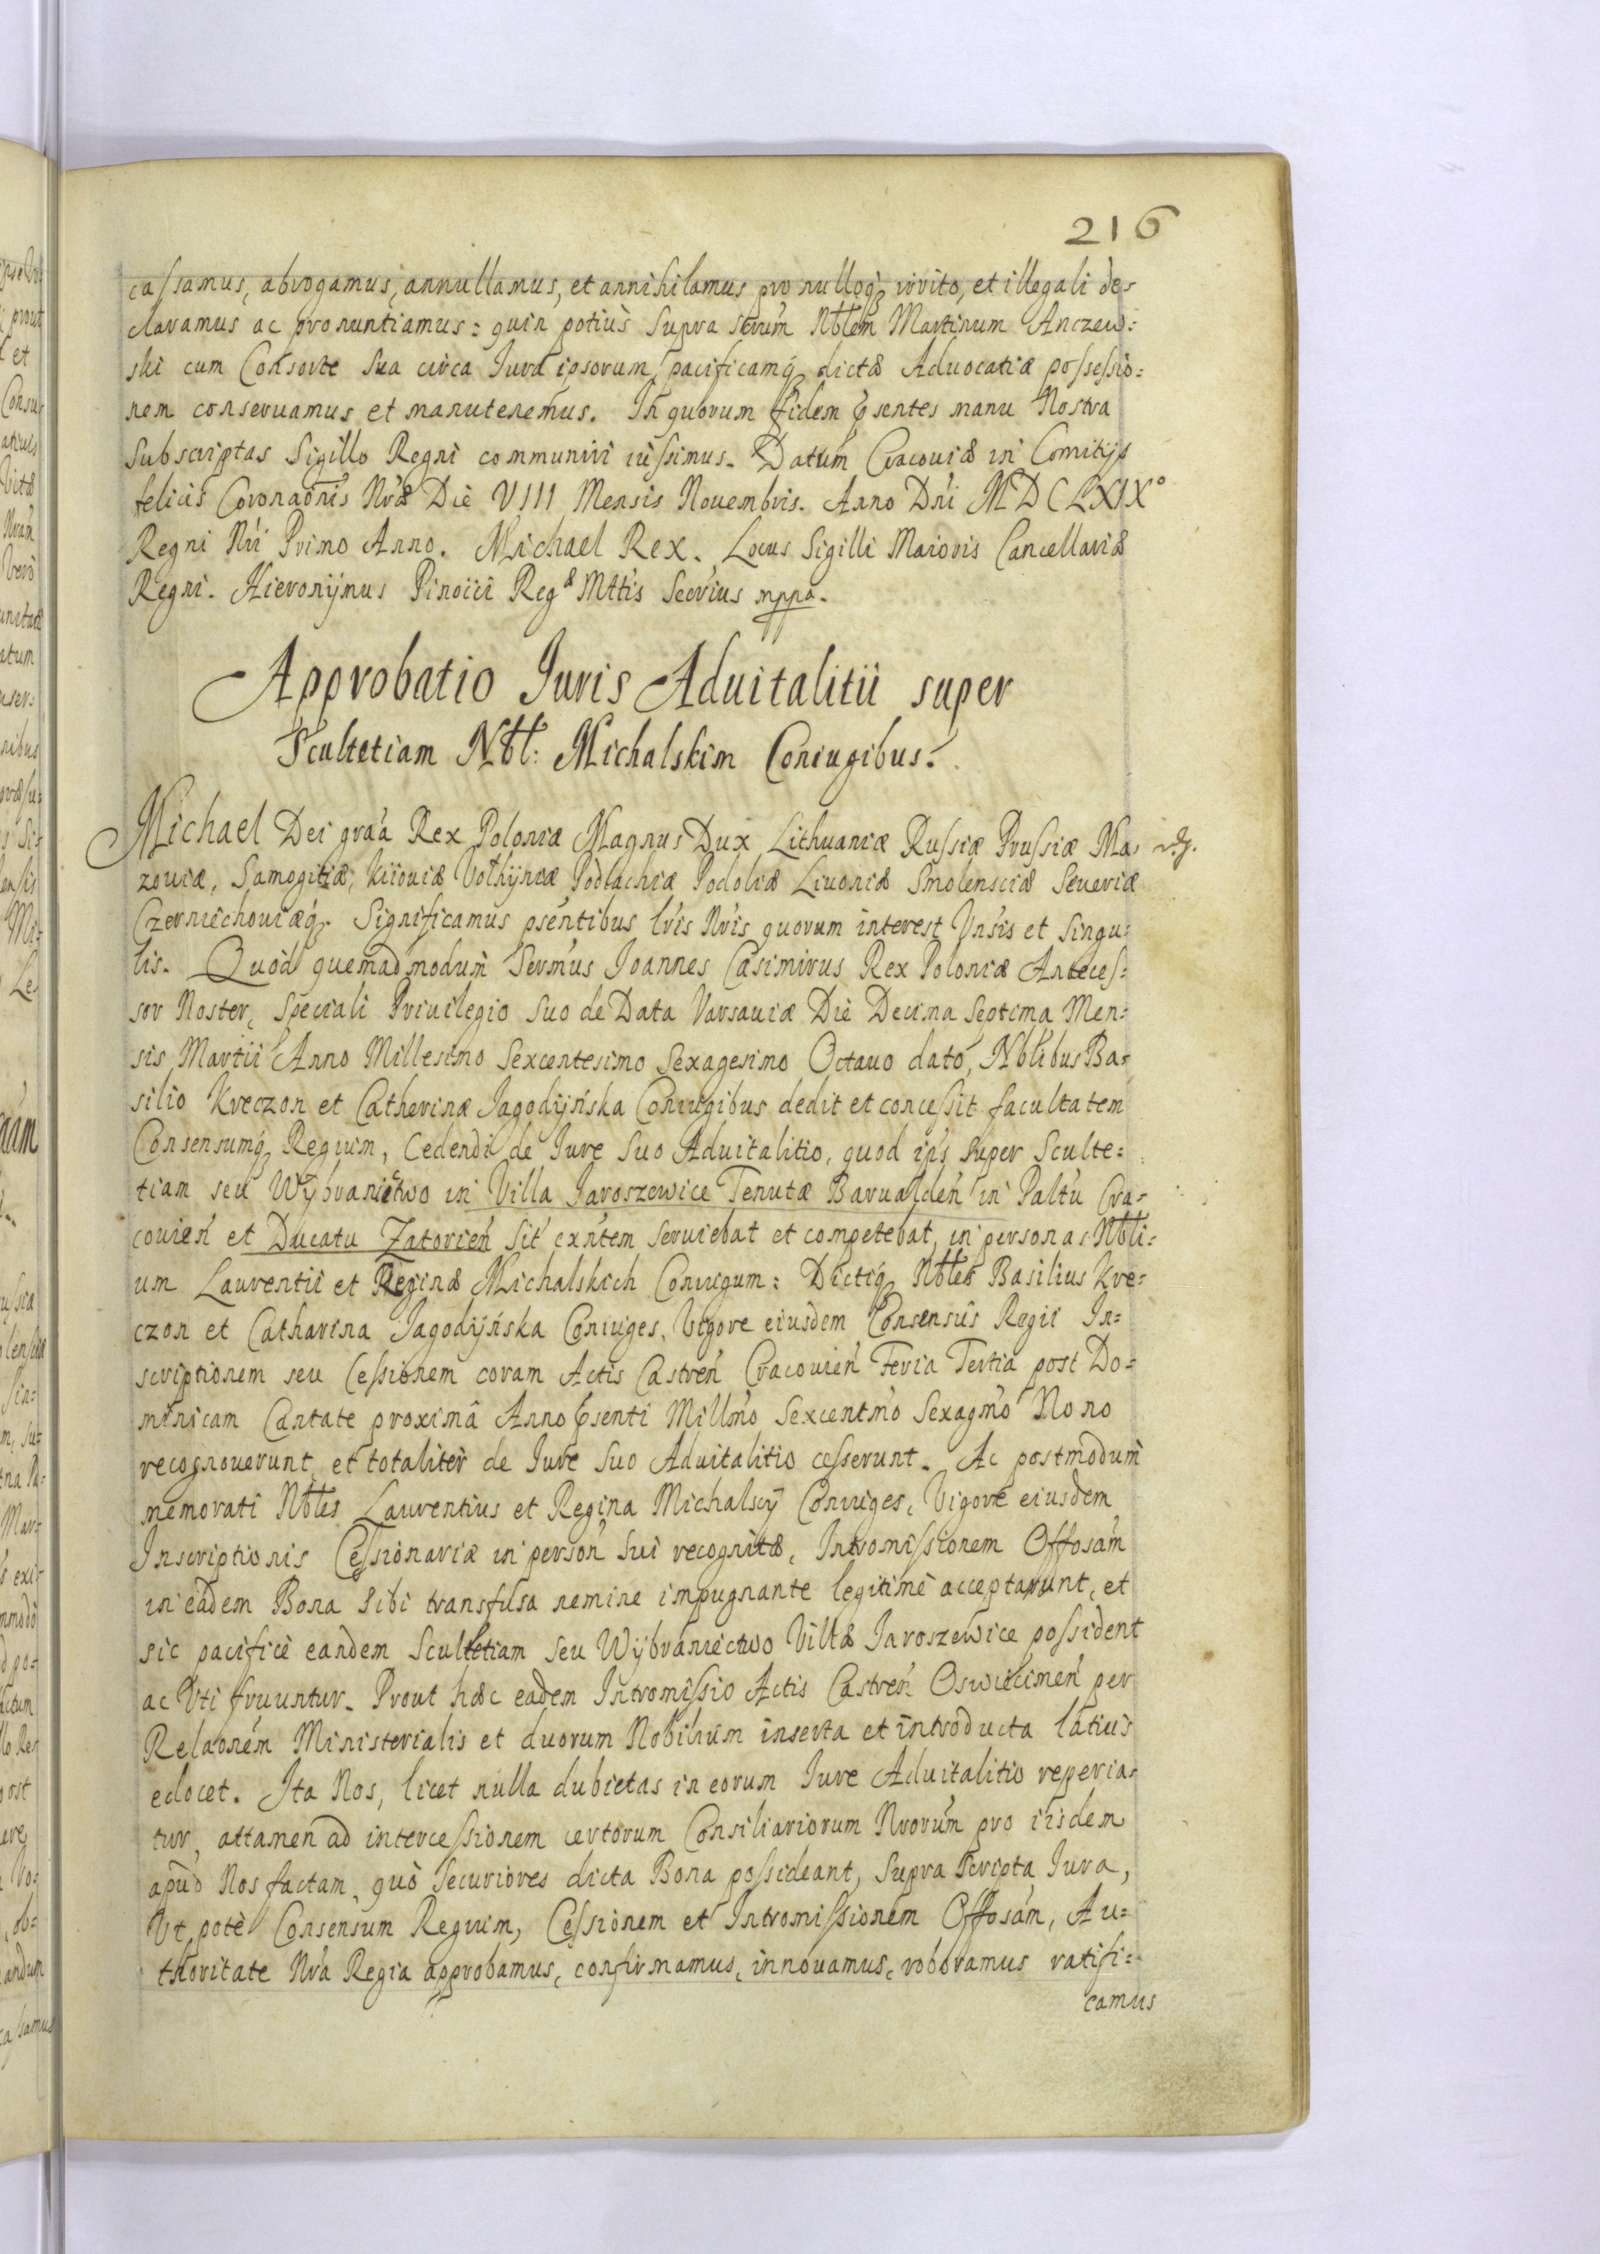 216
cassamus, abrogamus, annullamus, et annihilamus pro nulloq3 irrito, et illegali de-
claramus ac pronuntiamus: quin potiùs supra scrum̃ Nbtem̃ Martinum Anczew:
ski cum Consorte sua circa Iura ipsorum, pacificamq3 dictæ Aduocatiæ possessio:
nem conseruamus et manutenemus. In quorum fidem psentes manu Nostra
subscriptas Sigillo Regni communiri iussimus. Datum Cracouiæ in Comitijs
felicis Coronaõnis Nræ Die VIII Mensis Nouembris. Anno Dni MDCLXIX°
Regni Nri Primo Anno. Michael Rex. Locus Sigilli Maioris Cancellariæ
Regni. Hieronÿmus Pinocci Regæ Mttis Secrius mppa.
Approbatio Iuris Aduitalitii super
Scultetiam Nbl: Michalskim Coniugibus.
Michael Dei graã Rex Poloniæ Magnus Dux Lithuaniæ Russiæ Prussiæ Ma-
zouiæ, Samogitiæ, Kiiouiæ Volhÿniæ Podlachiæ Podoliæ Liuoniæ Smolensciæ Seueriæ
Czerniechouiæq3. Significamus psentibus lris Nris quorum interest Vnsis et singu:
lis. Quòd quemadmodum Sermus Joannes Casimirus Rex Poloniæ Anteces:
sor Noster, speciali Priuilegio suo de Data Varsauiæ Die Decima Septima Men:
sis Martii Anno Millesimo Sexcentesimo Sexagesimo Octauo dato, Nbtibus Ba-
silio Kreczon et Catherinæ Jagodÿńska Coniugibus dedit et concessit facultatem
Consensumq3 Regium, Cedendi de Iure suo Aduitalitio, quod ipis super Sculte:
tiam seu Wÿbraniectwo in Villa Jaroszewice Tenutæ Barualdeń in Paltu Cra-
couień et Ducatu Zatorień sit exntem seruiebat et competebat, in personas Nbti:
um Laurentii et Reginæ Michalskich Coniugum: Dictiq3 Nbtes Basilius Kre:
czon et Catharina Jagodÿńska Coniuges, Vigore eiusdem Consensûs Regii In:
scriptionem seu Cessionem coram Actis Castreń Cracouień Feria Tertia post Do:
minicam Cantate proximâ Anno psenti Millmo Sexcentmo Sexagmo Nono
recognouerunt, et totaliter de Iure suo Aduitalitio cesserunt. Ac postmodum
memorati Nbtes Laurentius et Regina Michalscÿ Coniuges, Vigore eiusdem
Inscriptionis Cessionariæ in persoń sui recognitæ, Intromissionem Offosam
in eadem Bona sibi transfusa nemine impugnante legitimè acceptarunt, et
sic pacificè eandem Scultetiam seu Wÿbraniectwo Villæ Jaroszewice possident
ac Vti fruuntur. Prout hæc eadem Intromissio Actis Castreń Oswiecimeń per
Relaonẽm Ministerialis et duorum Nobilium inserta et introducta latiùs
edocet. Ita Nos, licet nulla dubietas in eorum Iure Aduitalitio reperia-
tur, attamen ad intercessionem certorum Consiliariorum Nrorum pro iisdem
apud Nos factam, quò securiores dicta Bona possideant, supra scripta Iura,
Vt potè Consensum Regium, Cessionem et Intromissionem Offosam, Au:
thoritate Nra Regia approbamus, confirmamus, innouamus, roboramus ratifi:
camus